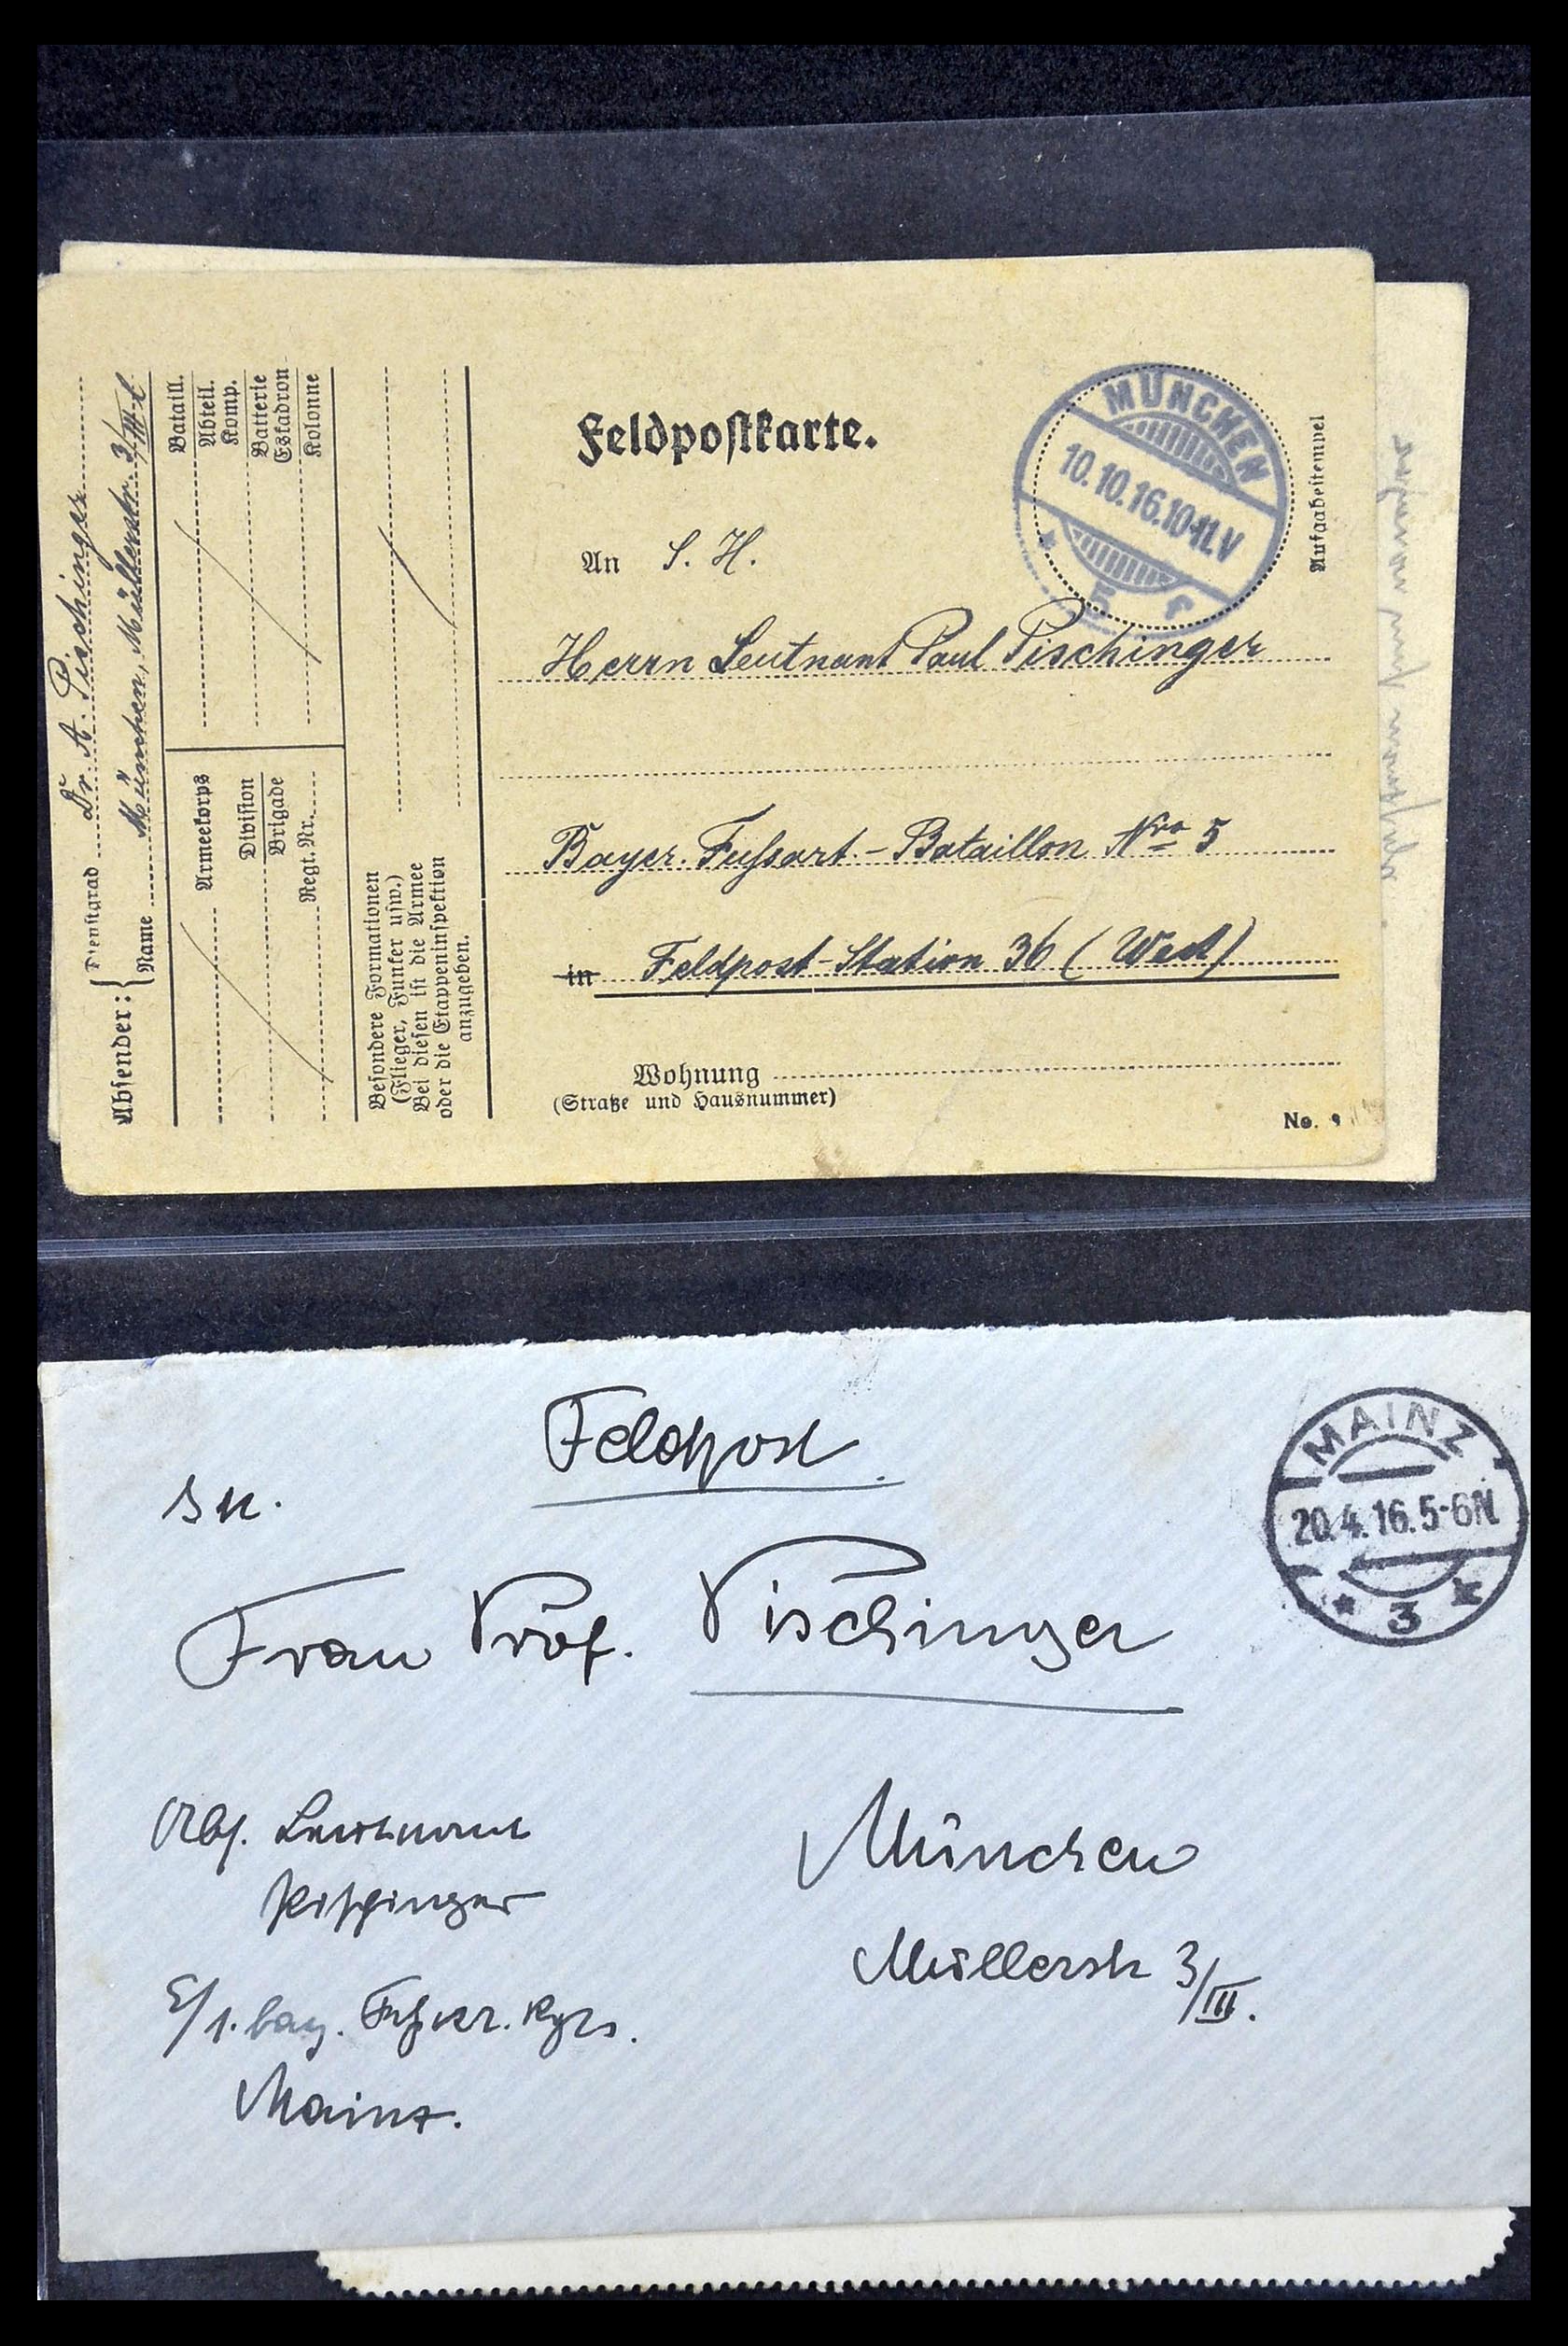 Absender:
Dienstgrad Dr. A. Pischinger
Name München, Müllerstr. 3/III l.
Armeekorps
Division
Brigade
Regt. Nr.
Bataill.
Abteil.
Komp.
Batterie
Eskadron
Kolonne
Besondere Formationen
(Flieger, Funker usw.)
Bei diesen ist die Armee
oder die Etappeninspektion
anzugeben.
Feldpostkarte.
MÜNCHEN
10.10.16.10-11.V
* 5 f
Aufgabestempel
An S. H.
Herrn Leutnant Paul Pischinger
Bayer. Fußart.-Bataillon Nro 5
in Feldpost-Station 36 (West)
Wohnung
(Straße und Hausnummer)
No.
Feldpost.
MAINZ
20.4.16.5-6N
* 3 k
Frau Prof. Pischinger
Abs. Leutnant
Pischinger
E/1. bay. Fußar. Rgts.
Mainz.
München
Müllerstr 3/III.